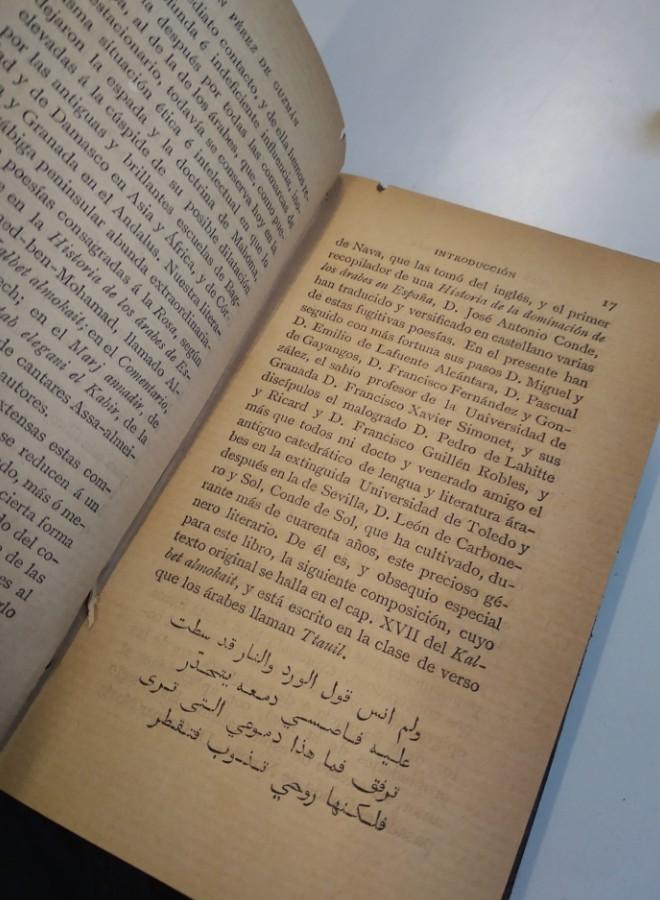 N PÉREZ DE GUZMÁN
mediato contacto, y de ella hemos re-
funda é indeficiente influencia,
la después por todas las comarcas de
al de la de los árabes, que, como pue-
estacionario, todavía se conserva hoy en la
isma situación ética é intelectual en que la
dejaron la espada y la doctrina de Mahoma,
elevadas á la cúspide de su posible dilatación
por las antiguas y brillantes escuelas de Bag-
ad y de Damasco en Asia y África, y de Cór-
a y Granada en el Andalus. Nuestra litera-
rábiga peninsular abunda extraordinaria-
poesías consagradas á la Rosa, según
e en la Historia de los árabes de Es-
med-ben-Mohamad, llamado Al-
albet almokait; en el Comentario,
ech; en el Marj annadir, de
tab elegani el Kabir, de la
de cantares Assa-almei-
autores.
extensas estas com-
se reducen á un
do, más ó me-
cierta forma
do del co-
e de las
es al
rlo
INTRODUCCIÓN
17
de Nava, que las tomó del inglés, y el primer
recopilador de una Historia de la dominación de
los árabes en España, D. José Antonio Conde,
han traducido y versificado en castellano varias
de estas fugitivas poesías. En el presente han
seguido con más fortuna sus pasos D. Miguel y
D. Emilio de Lafuente Alcántara, D. Pascual
de Gayangos, D. Francisco Fernández y Gon-
zález, el sabio profesor de la Universidad de
Granada D. Francisco Xavier Simonet, y sus
discípulos el malogrado D. Pedro de Lahitte
y Ricard y D. Francisco Guillén Robles, y
más que todos mi docto y venerado amigo el
antiguo catedrático de lengua y literatura ára-
bes en la extinguida Universidad de Toledo y
después en la de Sevilla, D. León de Carbone-
ro y Sol, Conde de Sol, que ha cultivado, du-
rante más de cuarenta años, este precioso gé-
nero literario. De él es, y obsequio especial
para este libro, la siguiente composición, cuyo
texto original se halla en el cap. XVII del Kal-
bet almokait, y está escrito en la clase de verso
que los árabes llaman Ttauil.
ولم انس قول الورد والنار قد سطت
عليه فامسى دمعه يتحدّر
ترفق فما هذا دموعي التى ترى
فلكنها روحي تذوب فتقطر